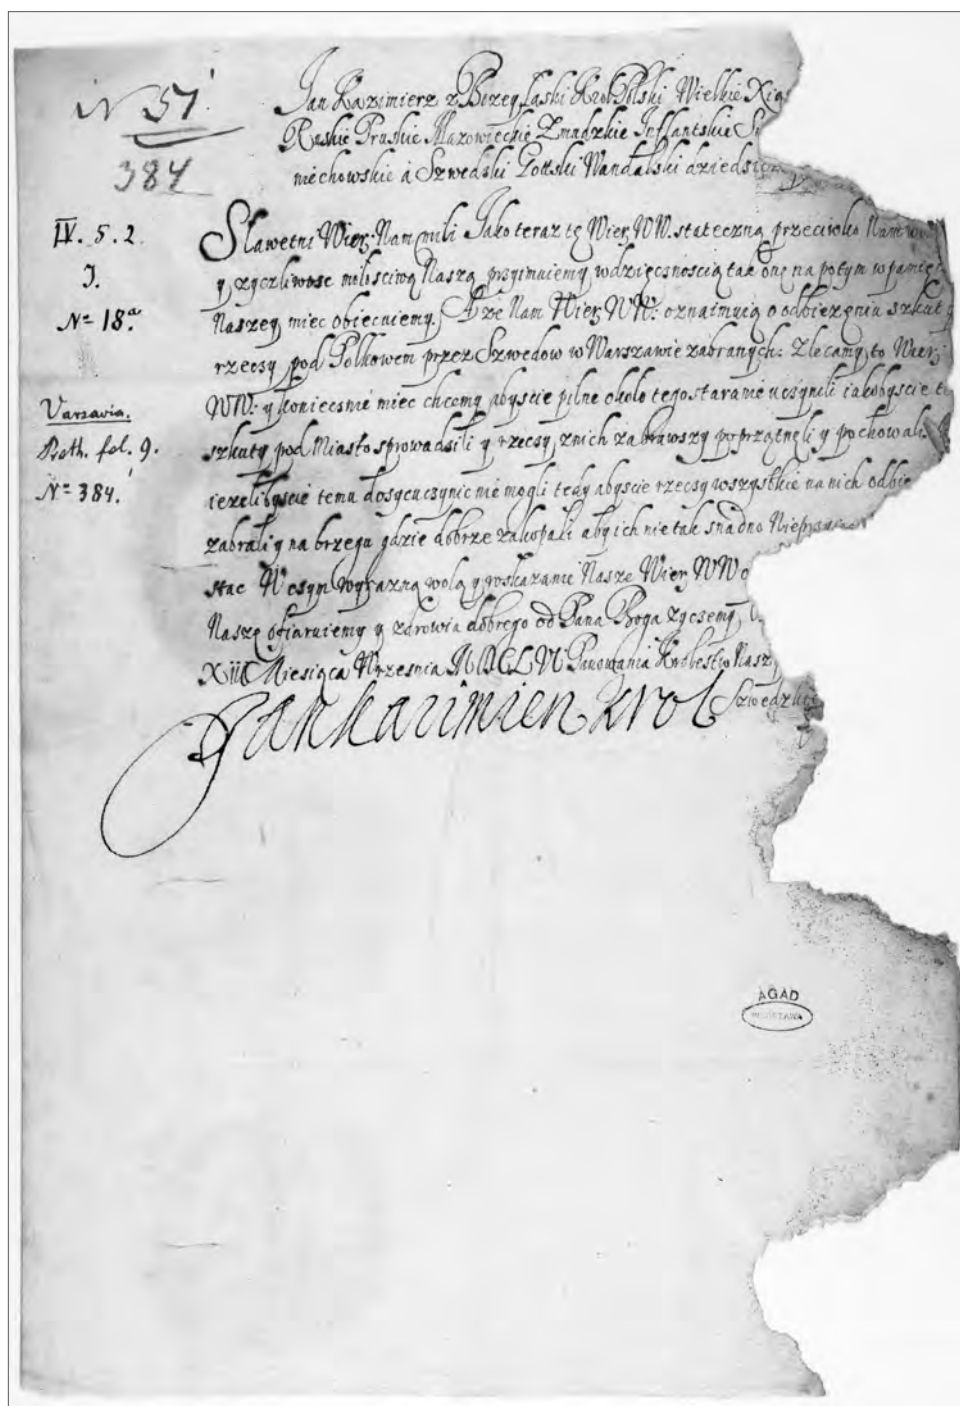 N 51.
384
IV. 5. 2.
J.
Nº 18.a
Varsavia.
Nº 384.
Jan Kazimierz z Bozey Łaski Krol Polski Wielkie Xią
Ruskie Pruskie Mazowieckie Zmudzkie Inflantskie S
niechowskie á Szwedski Gottski Wandalski dziedsi
Sławetni Wier: Nam mili Jako teraz tę Wier, WW. stateczną przeciwko Nam w
y zyczliwosc miłosciwą Naszą przyimuiemy wdzięcsnoscią tak onę na potym w pamięc
Naszey miec obiecuiemy. Aze Nam Wier, WW: oznaimuią o odbiezęniu szkut y
rzecsy pod Polkowem przez Szwedow w Warszawie zabranych: Zlecamy to Wier,
WW: y koniecsnie miec chcemy abyscie pilne około tego staranie uczynili iakobyscie te
szkuty pod Miasto sprowadsili y rzecsy z nich zabrawszy poprzątnęli y pochowali
iezelibyscie temu dosyc ucsynic nie mogli tedy abyscie rzecsy wszystkie na nich odbie
zabrali y na brzegu gdzie dobrze zakopali aby ich nie tak snadno Nieprzyia
stac W csym wyrazną wolą y roskazanie Nasze Wier, WW o
Naszę ofiaruiemy y zdrowia dobrego od Pana Boga zycsemy,
XIII Miesiąca Wrzesnia MDCLVI Panowania Krolestw Nasz
Szwedzki
Jan Kazimierz Krol
AGAD
WARSZAWA